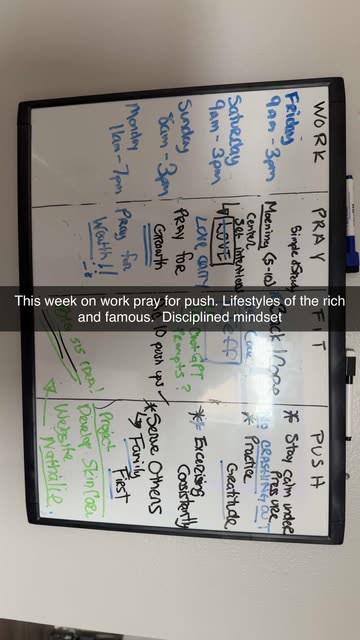 WORK
Friday
9am - 3pm
Saturday
9am - 3pm
Sunday
8am - 3pm
Monday
11am - 7pm
PRAY
Morning (5-10)
Center
Set intentions
LOVE
Love carry
Pray for
Growth
Pray for
Wealth!!
10 push ups ✓
ChatGPT
Prompts?
PUSH
* Stay calm under
pressure
* Practice
Gratitude
* Exercising
Consistently
* Serve Others
↳ Family
First
Project
Develop
Website
Nathalie
This week on work pray for push. Lifestyles of the rich
and famous. Disciplined mindset